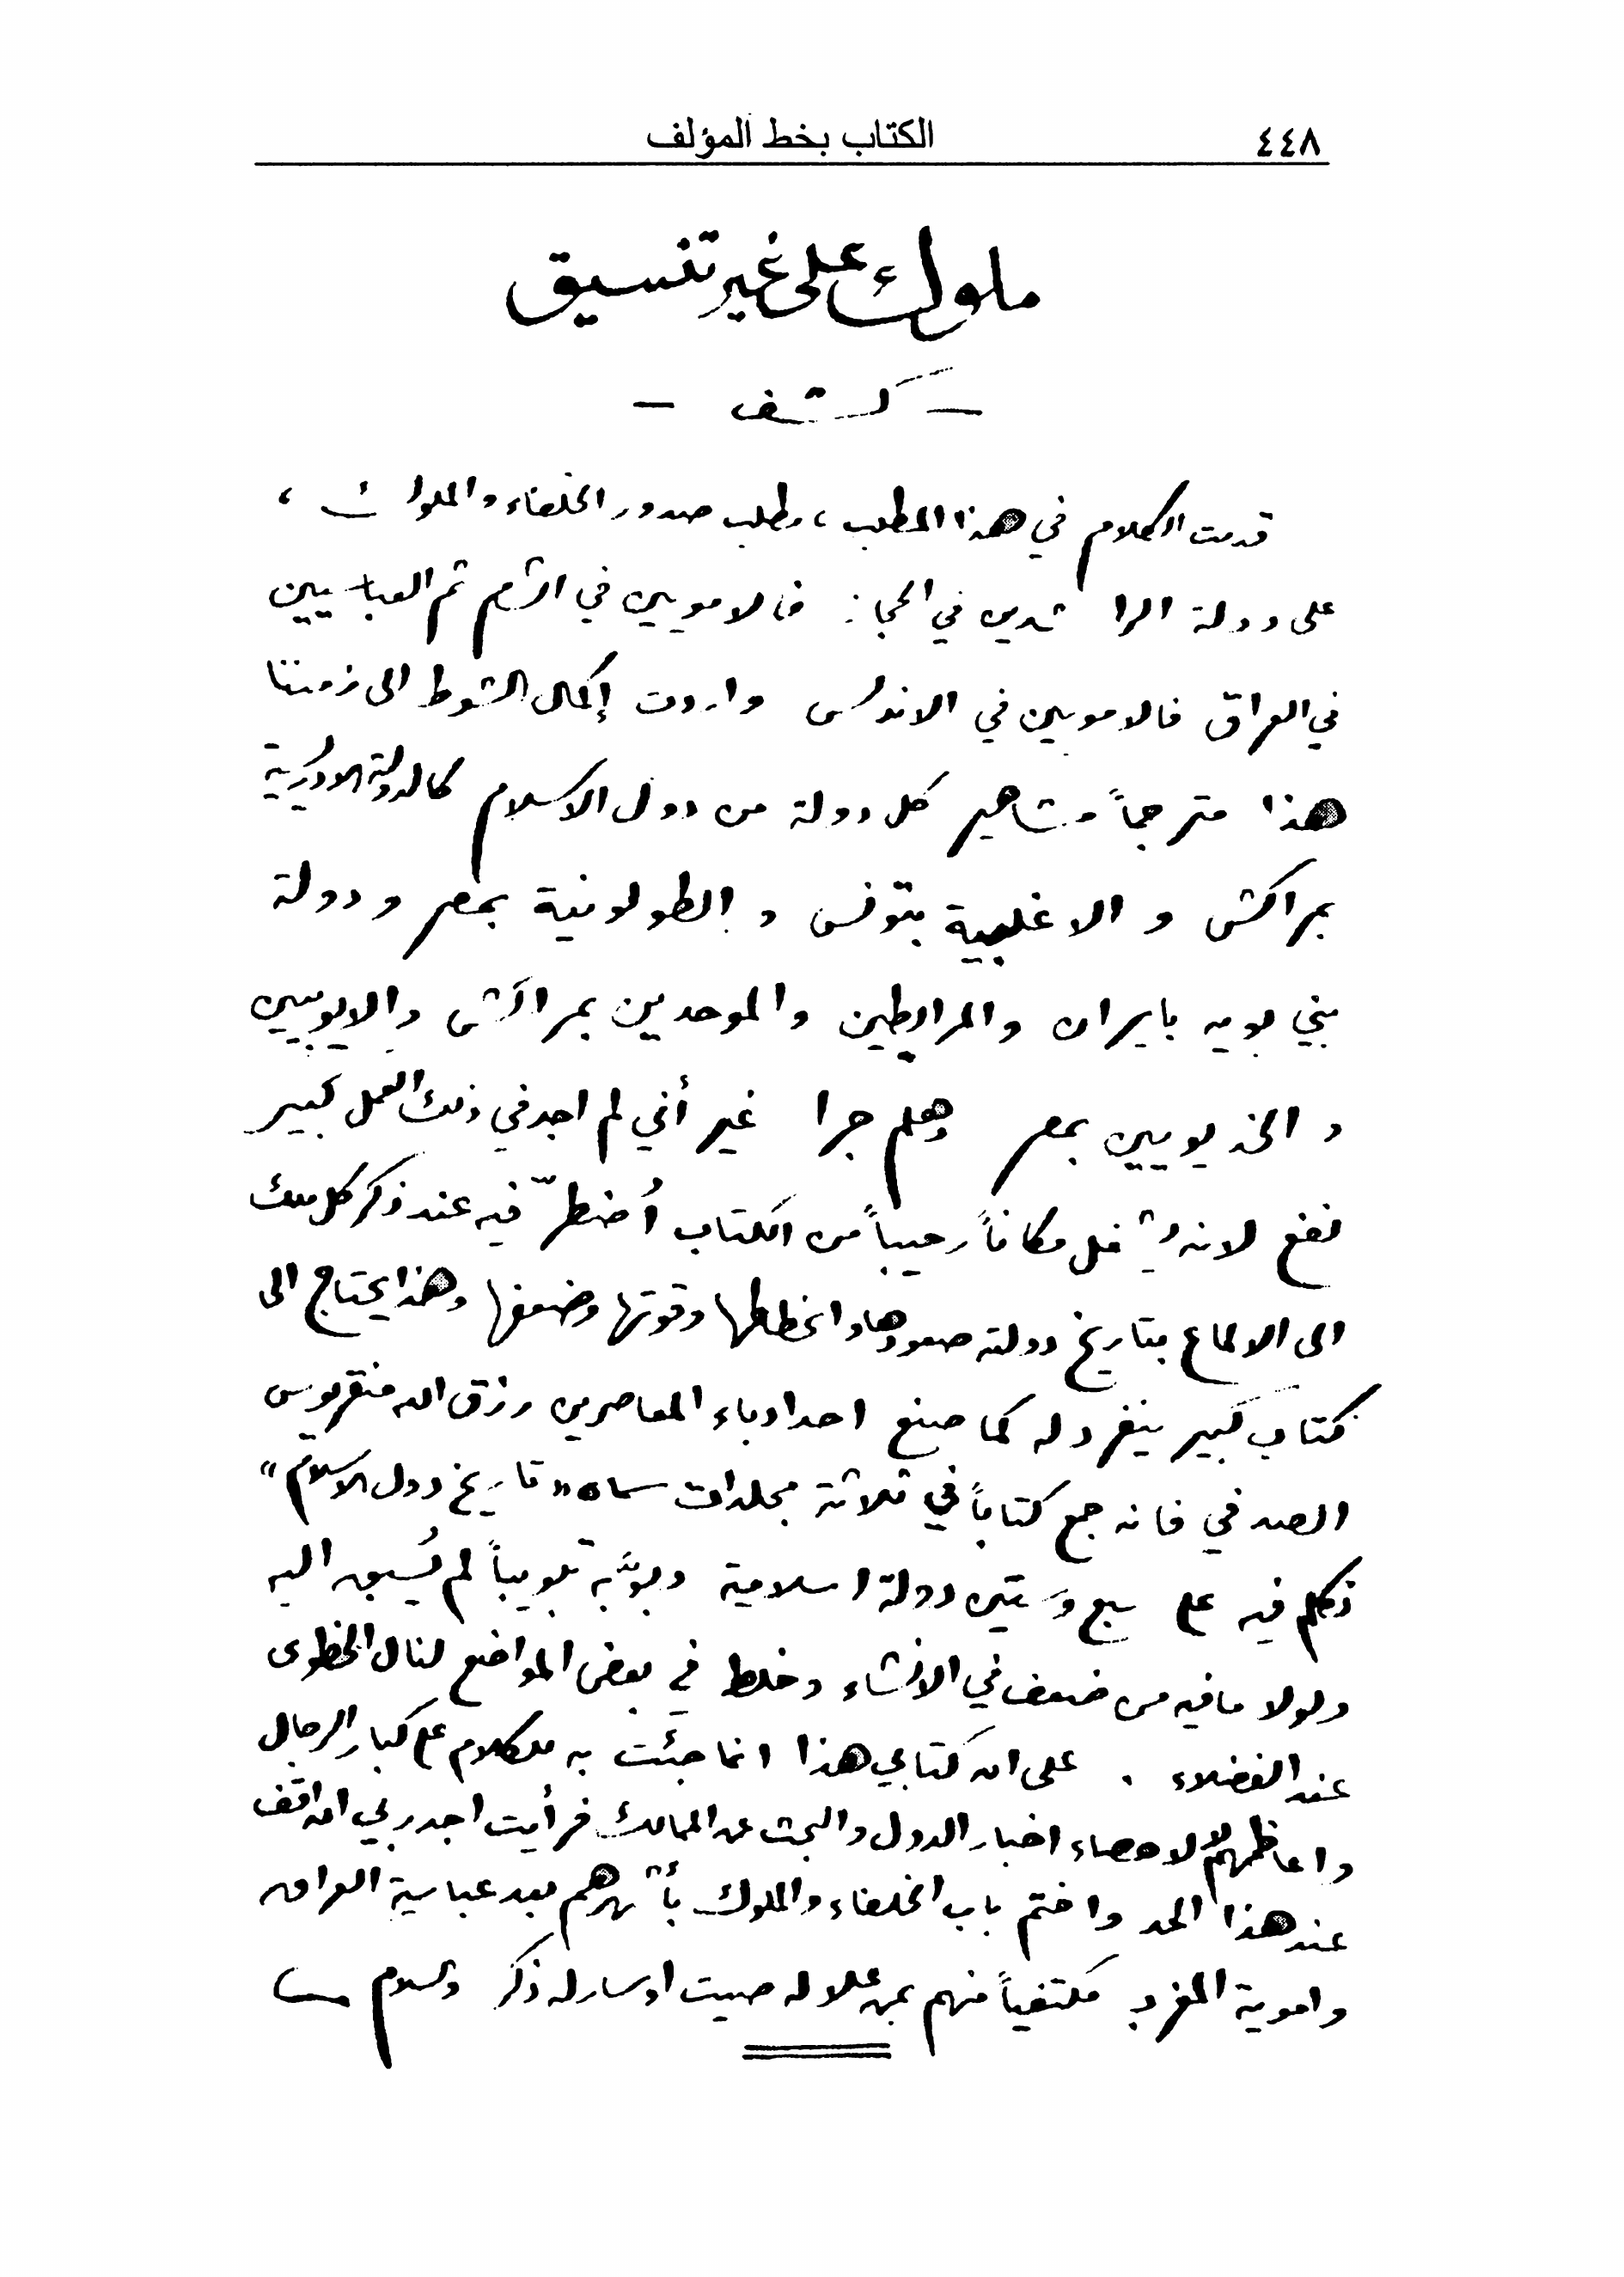 ٤٤٨ الكتاب بخط المؤلف
ملوك على غير تنسيق
– كشف –
قدمت الكلام في هذا المطلب، مطلب صدور الخلفاء والملوك،
على دولة الراشدين في الحجاز فالامويين في الشام ثم العباسيين
في العراق فالامويين في الاندلس واردت إكمال الشوط الى زمننا
هذا مترجماً مشاهير كل دولة من دول الاسلام كالدولة الادريسية
بمراكش و الاغلبية بتونس و الطولونية بمصر و دولة
بني بويه بايران والمرابطين والموحدين بمراكش والايوبيين
و الخديويين بمصر وهلم جرا غير أني لم اجد في ذلك العمل كبير
نفع لانه يشغل مكاناً رحيباً من الكتاب أُضطرّ فيه عند ذكر كل ملك
الى الالماع بتاريخ دولته صعودها وانحطاطها وقوتها وضعفها وهذا يحتاج الى
كتاب كبير ينفرد له كما صنع احد ادباء المعاصرين رزق الله منقريوس
الصدفي فانه جمع كتاباً في ثلاثة مجلدات سماه «تاريخ دول الاسلام»
تكلم فيه على سبع وستين دولة اسلامية وبوَّبه تبويباً لم يُسبق اليه
ولولا ما فيه من ضعف في الانشاء وخلط في بعض المواضع لنال الحظوى
عند الفضلاء . على ان كتابي هذا انما جئت به للكلام على كبار الرجال
واعاظمهم لا لاحصاء اخبار الدول والبحث عن الممالك فرأيت اجدر بي ان اقف
عند هذا الحد واختم باب الخلفاء والملوك بأشهرهم بعد عباسية العراق
واموية المغرب مكتفياً منهم بمن علا له صيت او سار له ذكر والسلام